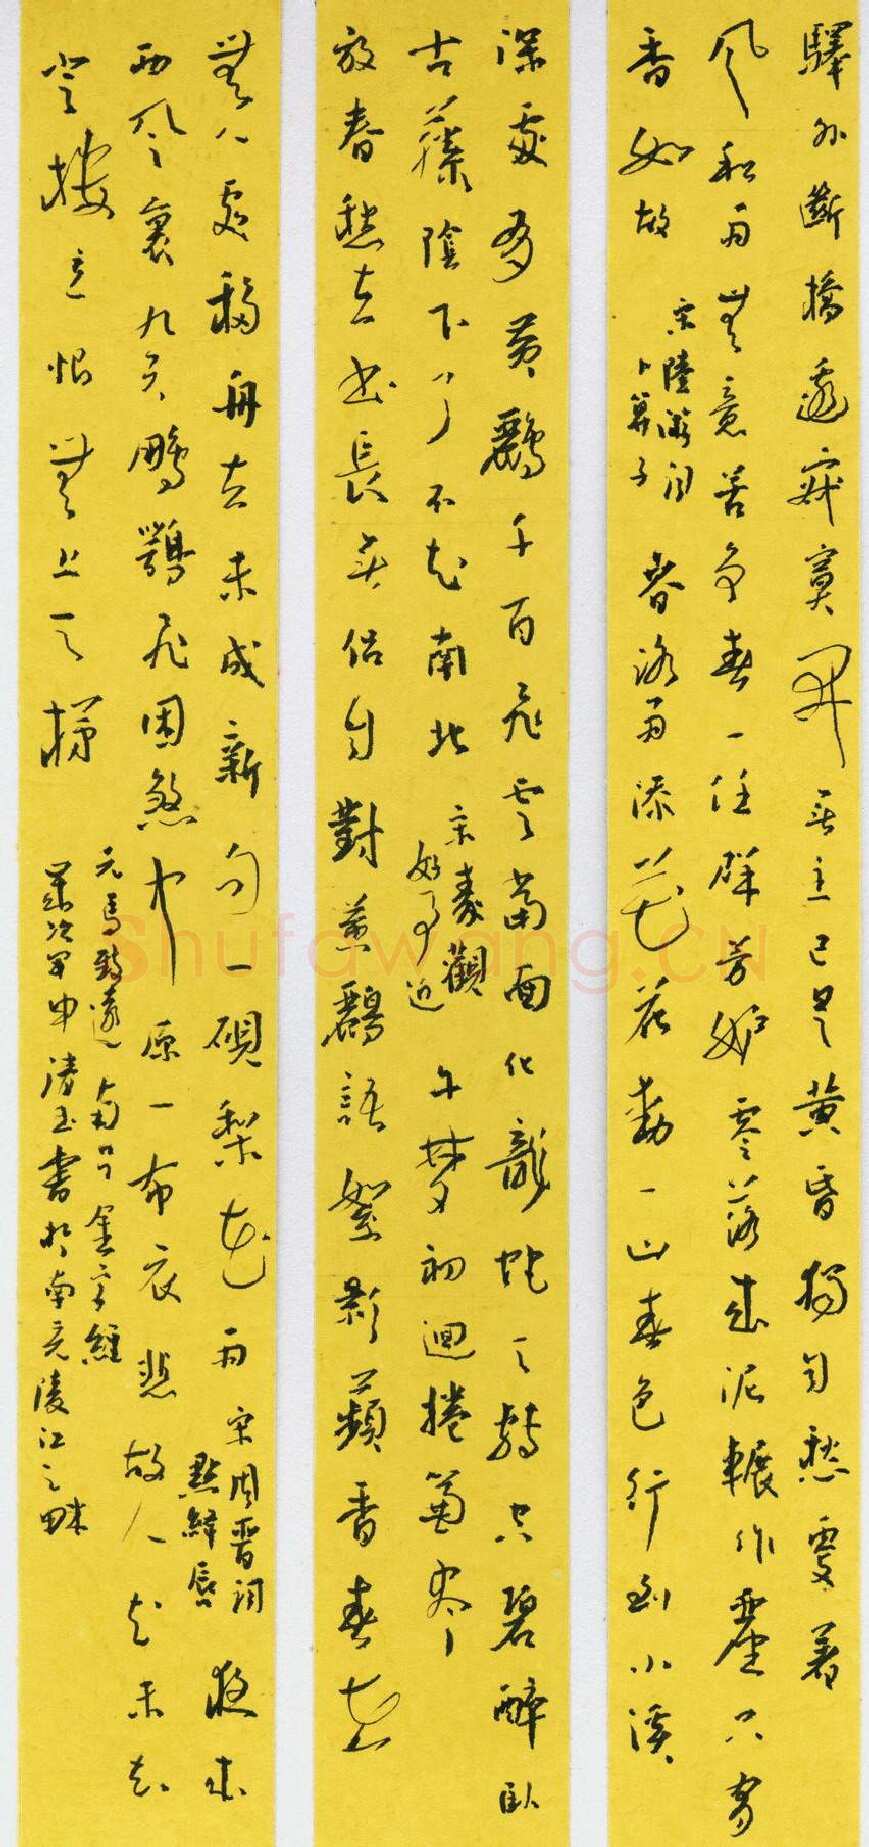 驛外斷橋邊寂寞開無主已是黃昏獨自愁更著
風和雨無意苦爭春一任群芳妒零落成泥輾作塵只有
香如故
宋陸游詞
卜算子
春路雨添花花動一山春色行到小溪
深處有黃鸝千百飛雲當面化龍蛇夭轉空碧醉臥
古藤陰下了不知南北
宋秦觀
好事近
午夢初迴捲簾盡
放春愁去晝長無侶自對黃鸝語絮影蘋香春在
無人處移舟去未成新句一硯梨花雨
宋周晉詞
點絳唇
夜來
西風裏九天鵬鶚飛困煞中原一布衣悲故人知未知
登樓意恨無上天梯
元馬致遠南呂金字經
歲次甲申清玉書於南充陵江之畔
Shufawang.CN